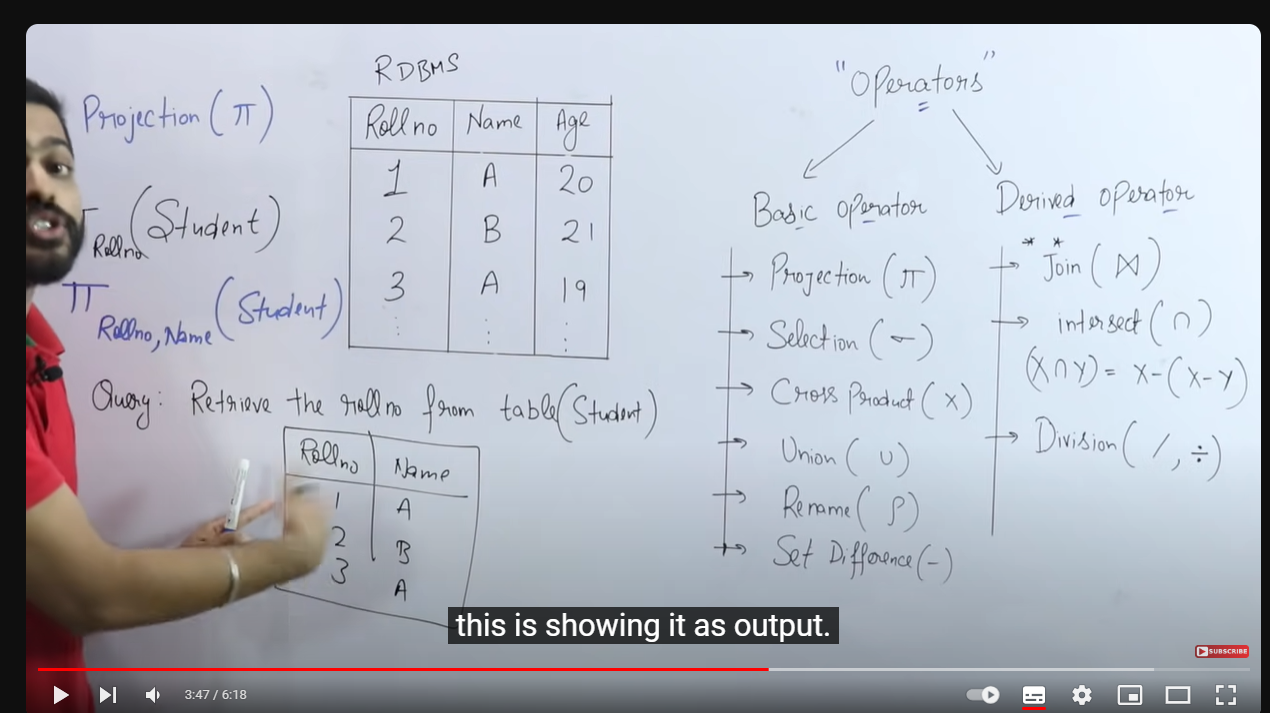 RDBMS
Projection (π)
Rollno Name Age
1 A 20
2 B 21
3 A 19
Rollno (Student)
π Rollno, Name (Student)
Query: Retrieve the rollno from table(Student)
Rollno Name
1 A
2 B
3 A
"Operators"
Basic operator
Projection (π)
Selection (σ)
Cross Product (×)
Union (∪)
Rename (ρ)
Set Difference (-)
Derived operator
* *
Join (⋈)
intersect (∩)
(X∩Y) = X-(X-Y)
Division (/, ÷)
this is showing it as output.
SUBSCRIBE
3:47 / 6:18